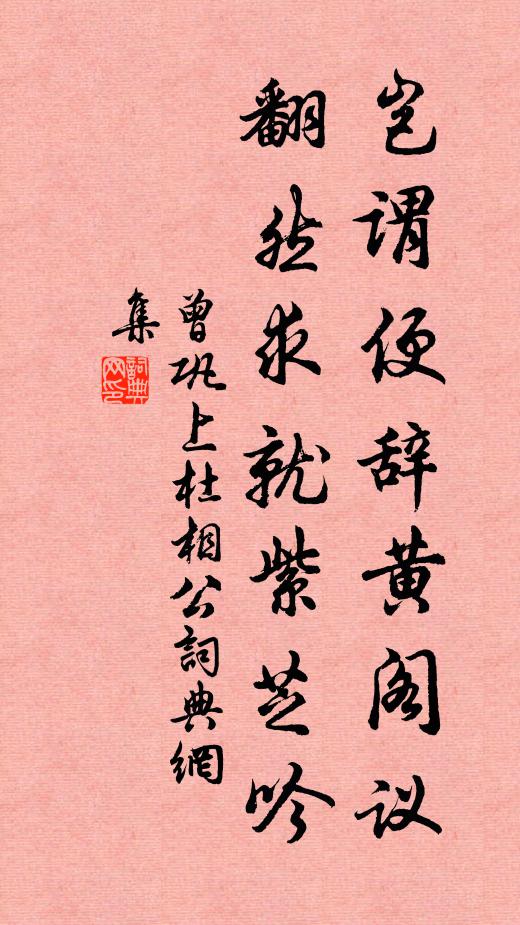 岂谓便辞黄阁议
翻然求就紫芝吟
曾巩上杜相公詞典網
集
詞典
网印